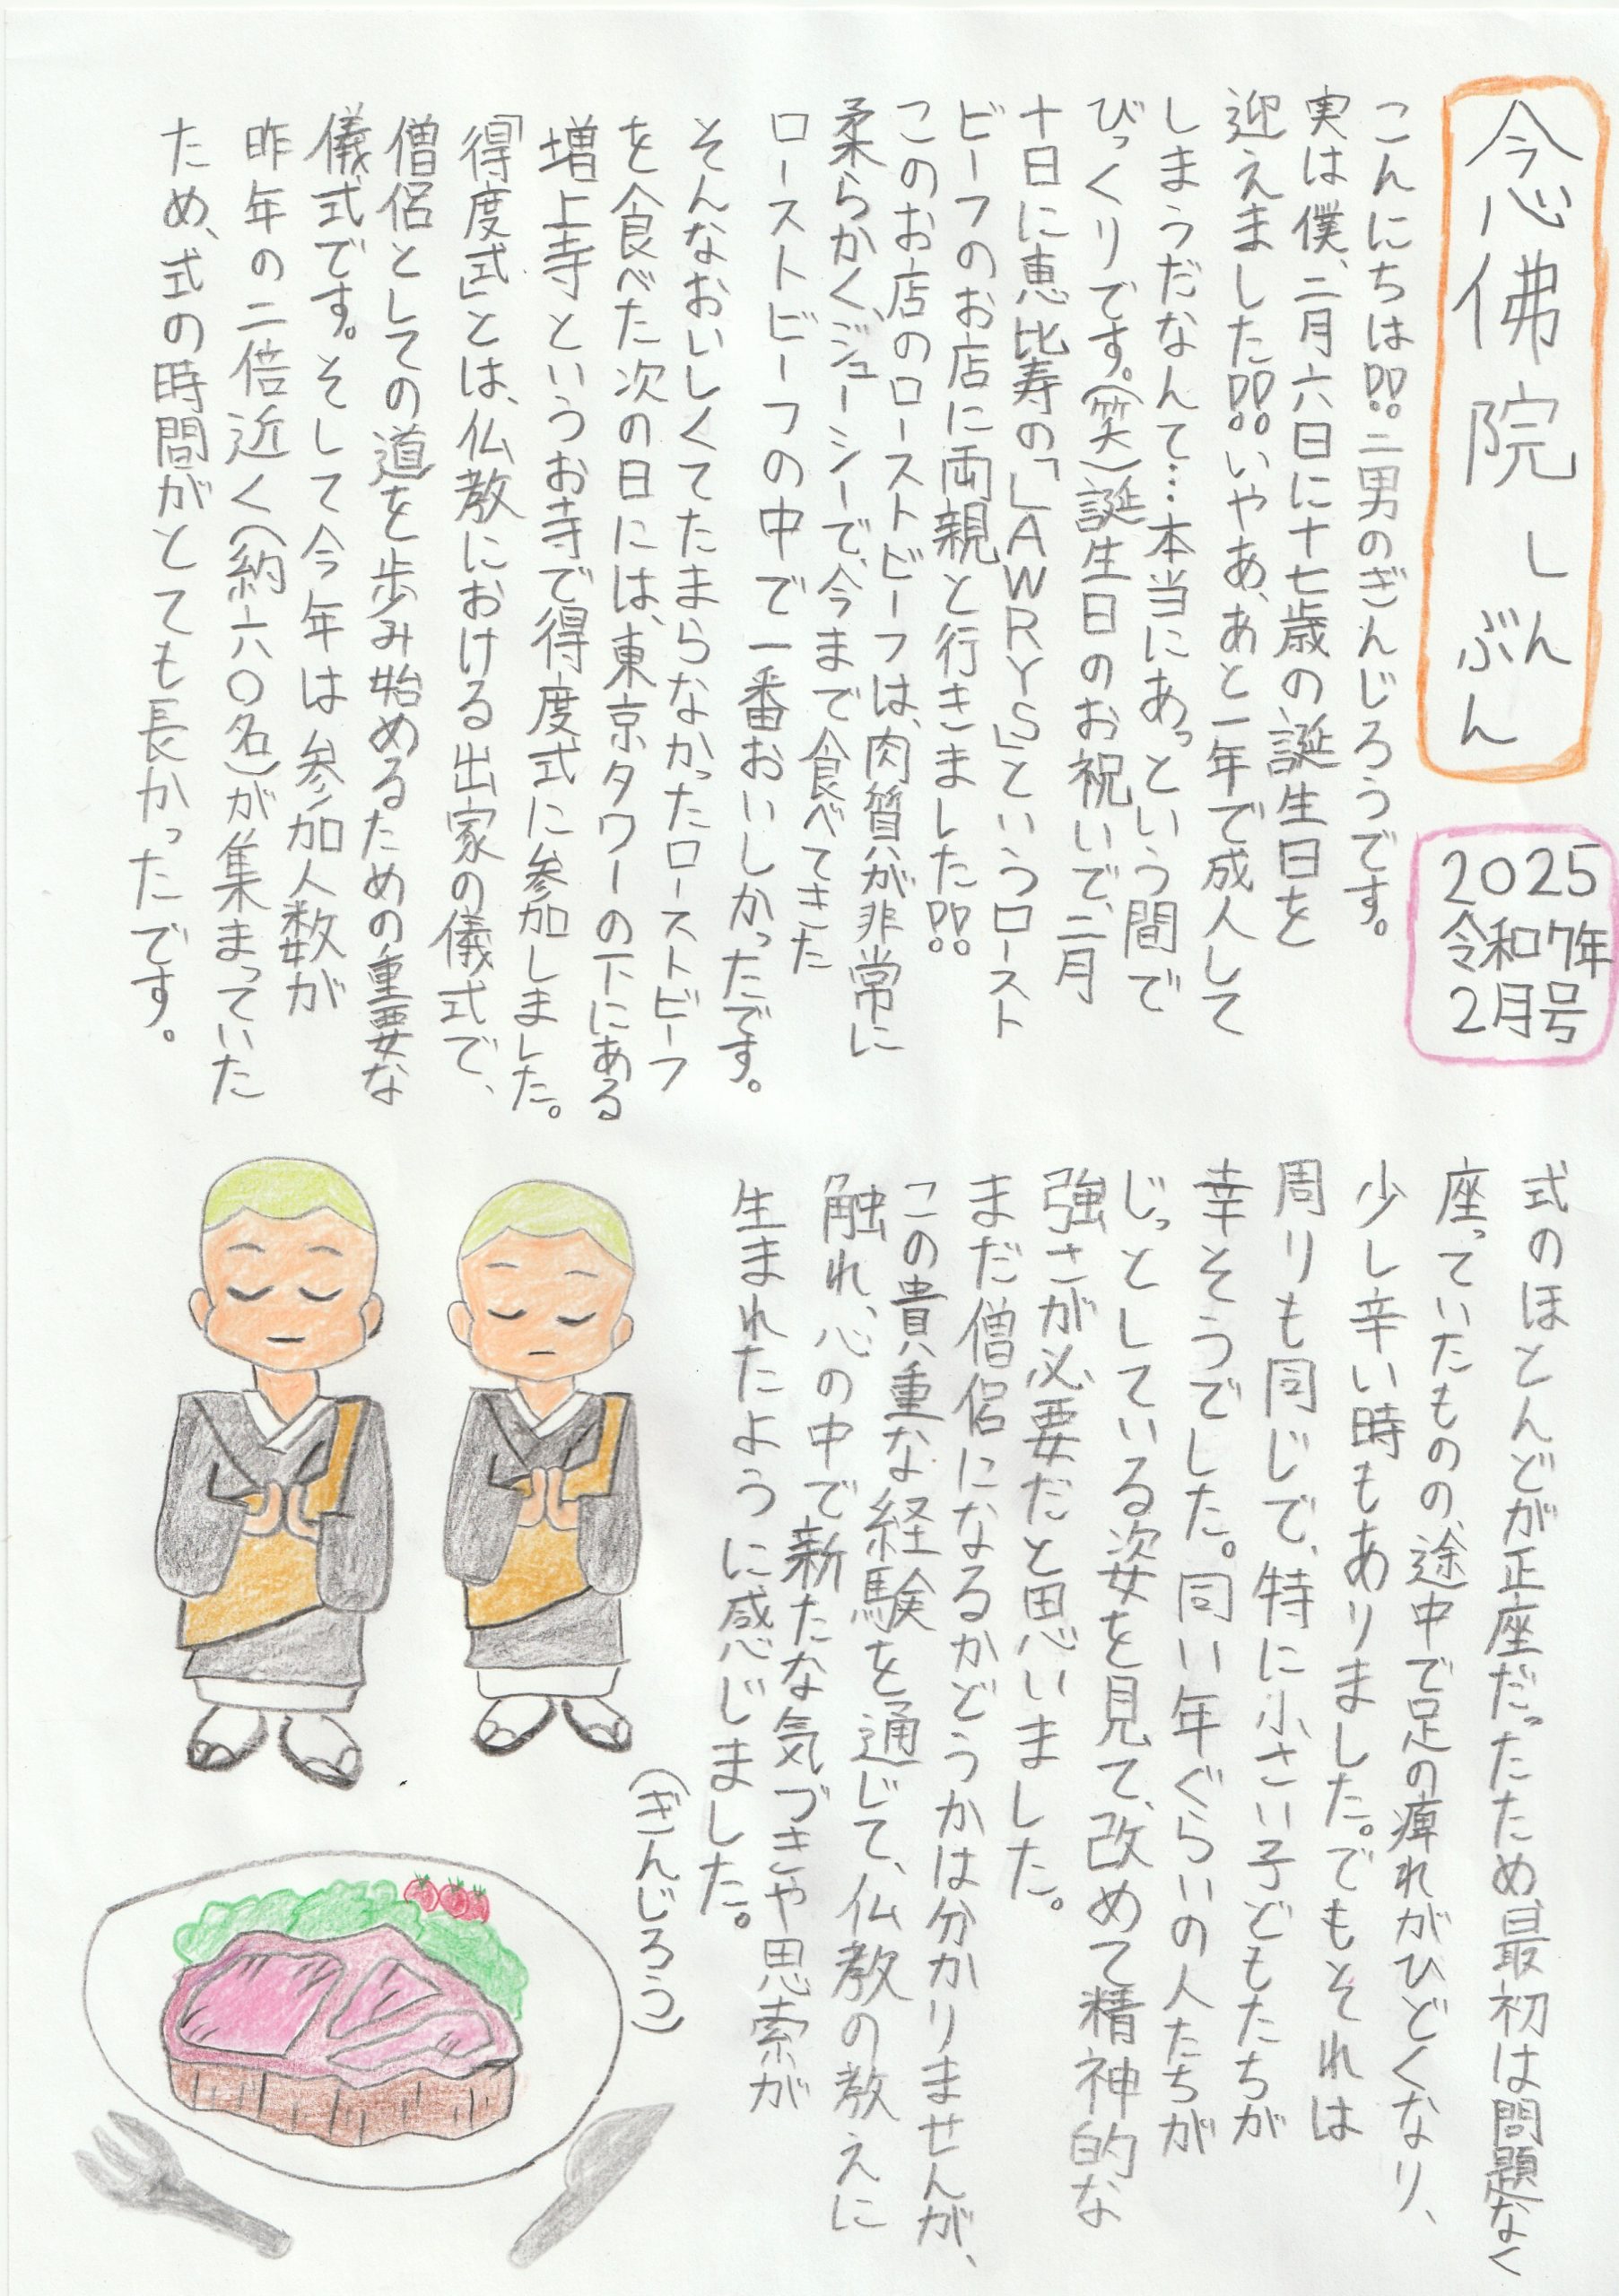 念佛院しんぶん
2025
令和7年
2月号
こんにちは!!二男のぎんじろうです。
実は僕、二月六日に十七歳の誕生日を
迎えました!!いやあ、あと一年で成人して
しまうだなんて…本当にあっという間で
びっくりです。(笑)誕生日のお祝いで、二月
十日に恵比寿の「LAWRYS」というロースト
ビーフのお店に両親と行きました!!
このお店のローストビーフは、肉質が非常に
柔らかく、ジューシーで、今まで食べてきた
ローストビーフの中で一番おいしかったです。
そんなおいしくてたまらなかったローストビーフ
を食べた次の日には、東京タワーの下にある
増上寺というお寺で得度式に参加しました。
「得度式」とは、仏教における出家の儀式で、
僧侶としての道を歩み始めるための重要な
儀式です。そして今年は参加人数が
昨年の二倍近く(約六〇名)が集まっていた
ため、式の時間がとても長かったです。
式のほとんどが正座だったため、最初は問題なく
座っていたものの、途中で足の痺れがひどくなり、
少し辛い時もありました。でもそれは
周りも同じで、特に小さい子どもたちが
幸そうでした。同い年ぐらいの人たちが
じっとしている姿を見て、改めて精神的な
強さが必要だと思いました。
まだ僧侶になるかどうかは分かりませんが、
この貴重な経験を通じて、仏教の教えに
触れ、心の中で新たな気づきや思索が
生まれたように感じました。
(ぎんじろう)